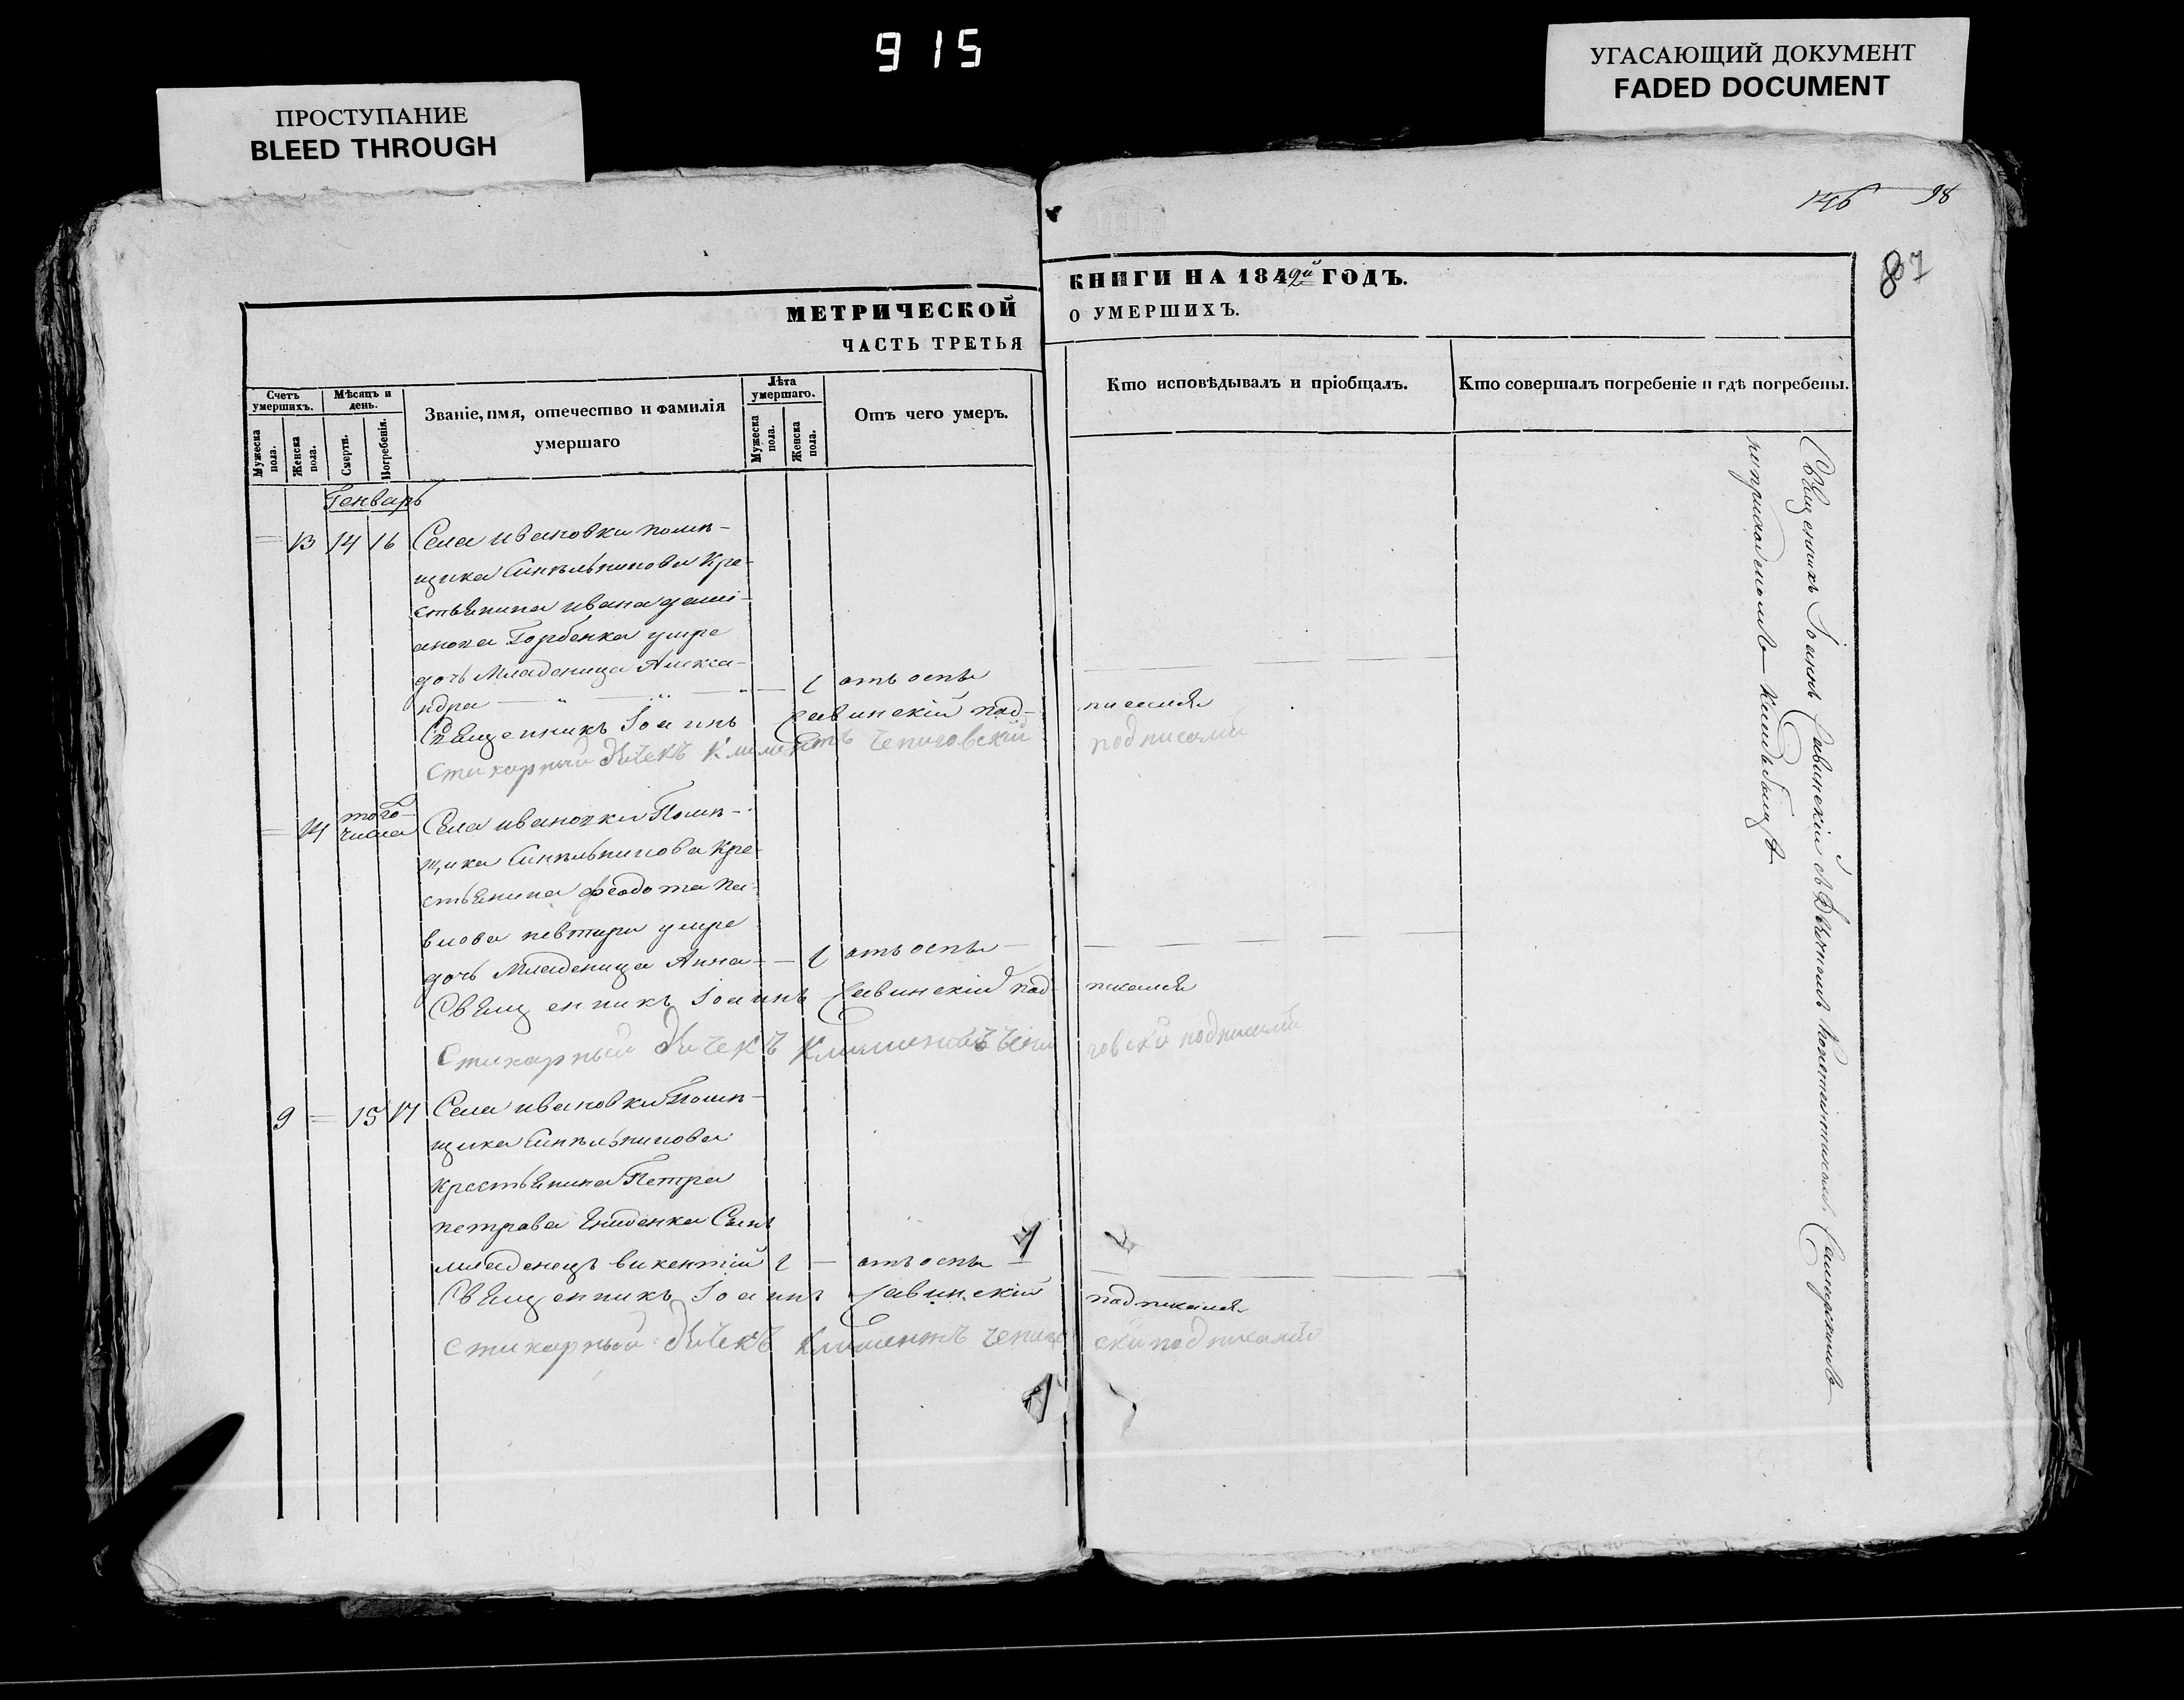 915
ПРОСТУПАНИЕ
BLEED THROUGH
УГАСАЮЩИЙ ДОКУМЕНТ
FADED DOCUMENT
146 98
87
МЕТРИЧЕСКОЙ КНИГИ НА 1842й ГОДЪ.
ЧАСТЬ ТРЕТЬЯ О УМЕРШИХЪ.
Счетъ умершихъ.
Мужеска пола.
Женска пола.
Мѣсяцъ и день.
Смерти.
Погребенія.
Званіе, имя, отечество и фамилія
умершаго
Лѣта умершаго.
Мужеска пола.
Женска пола.
Отъ чего умеръ.
Кто исповѣдывалъ и пріобщалъ.
Кто совершалъ погребеніе и гдѣ погребены.
Генварь
13 14 16 Села Ивановки помѣ-
щика Синѣльникова Кре-
стьянина Ивана
Горбенка умре
дочь Младеница Алекса-
ндра 1 отъ оспы
Священникъ Іоаннъ Савинскій подписался
Стихарный Дьячекъ Климентъ Чепиговскій подписалъ
14 того числа Села Ивановки Помѣ-
щика Синѣльникова Кре-
стьянина Феодота Па-
влова умре
дочь Младеница Анна 1 отъ оспы
Священникъ Іоаннъ Савинскій подписался
Стихарный Дьячекъ Климентъ Чепиговскій подписалъ
9 15 17 Села Ивановки Помѣ-
щика Синѣльникова
Крестьянина Петра
Петрова Сынъ
младенецъ Викентій 1 отъ оспы
Священникъ Іоаннъ Савинскій подписался
Стихарный Дьячекъ Климентъ Чепиговскій подписалъ
Священникъ Іоаннъ Савинскій съ Дьячкомъ
на приходскомъ кладбищѣ